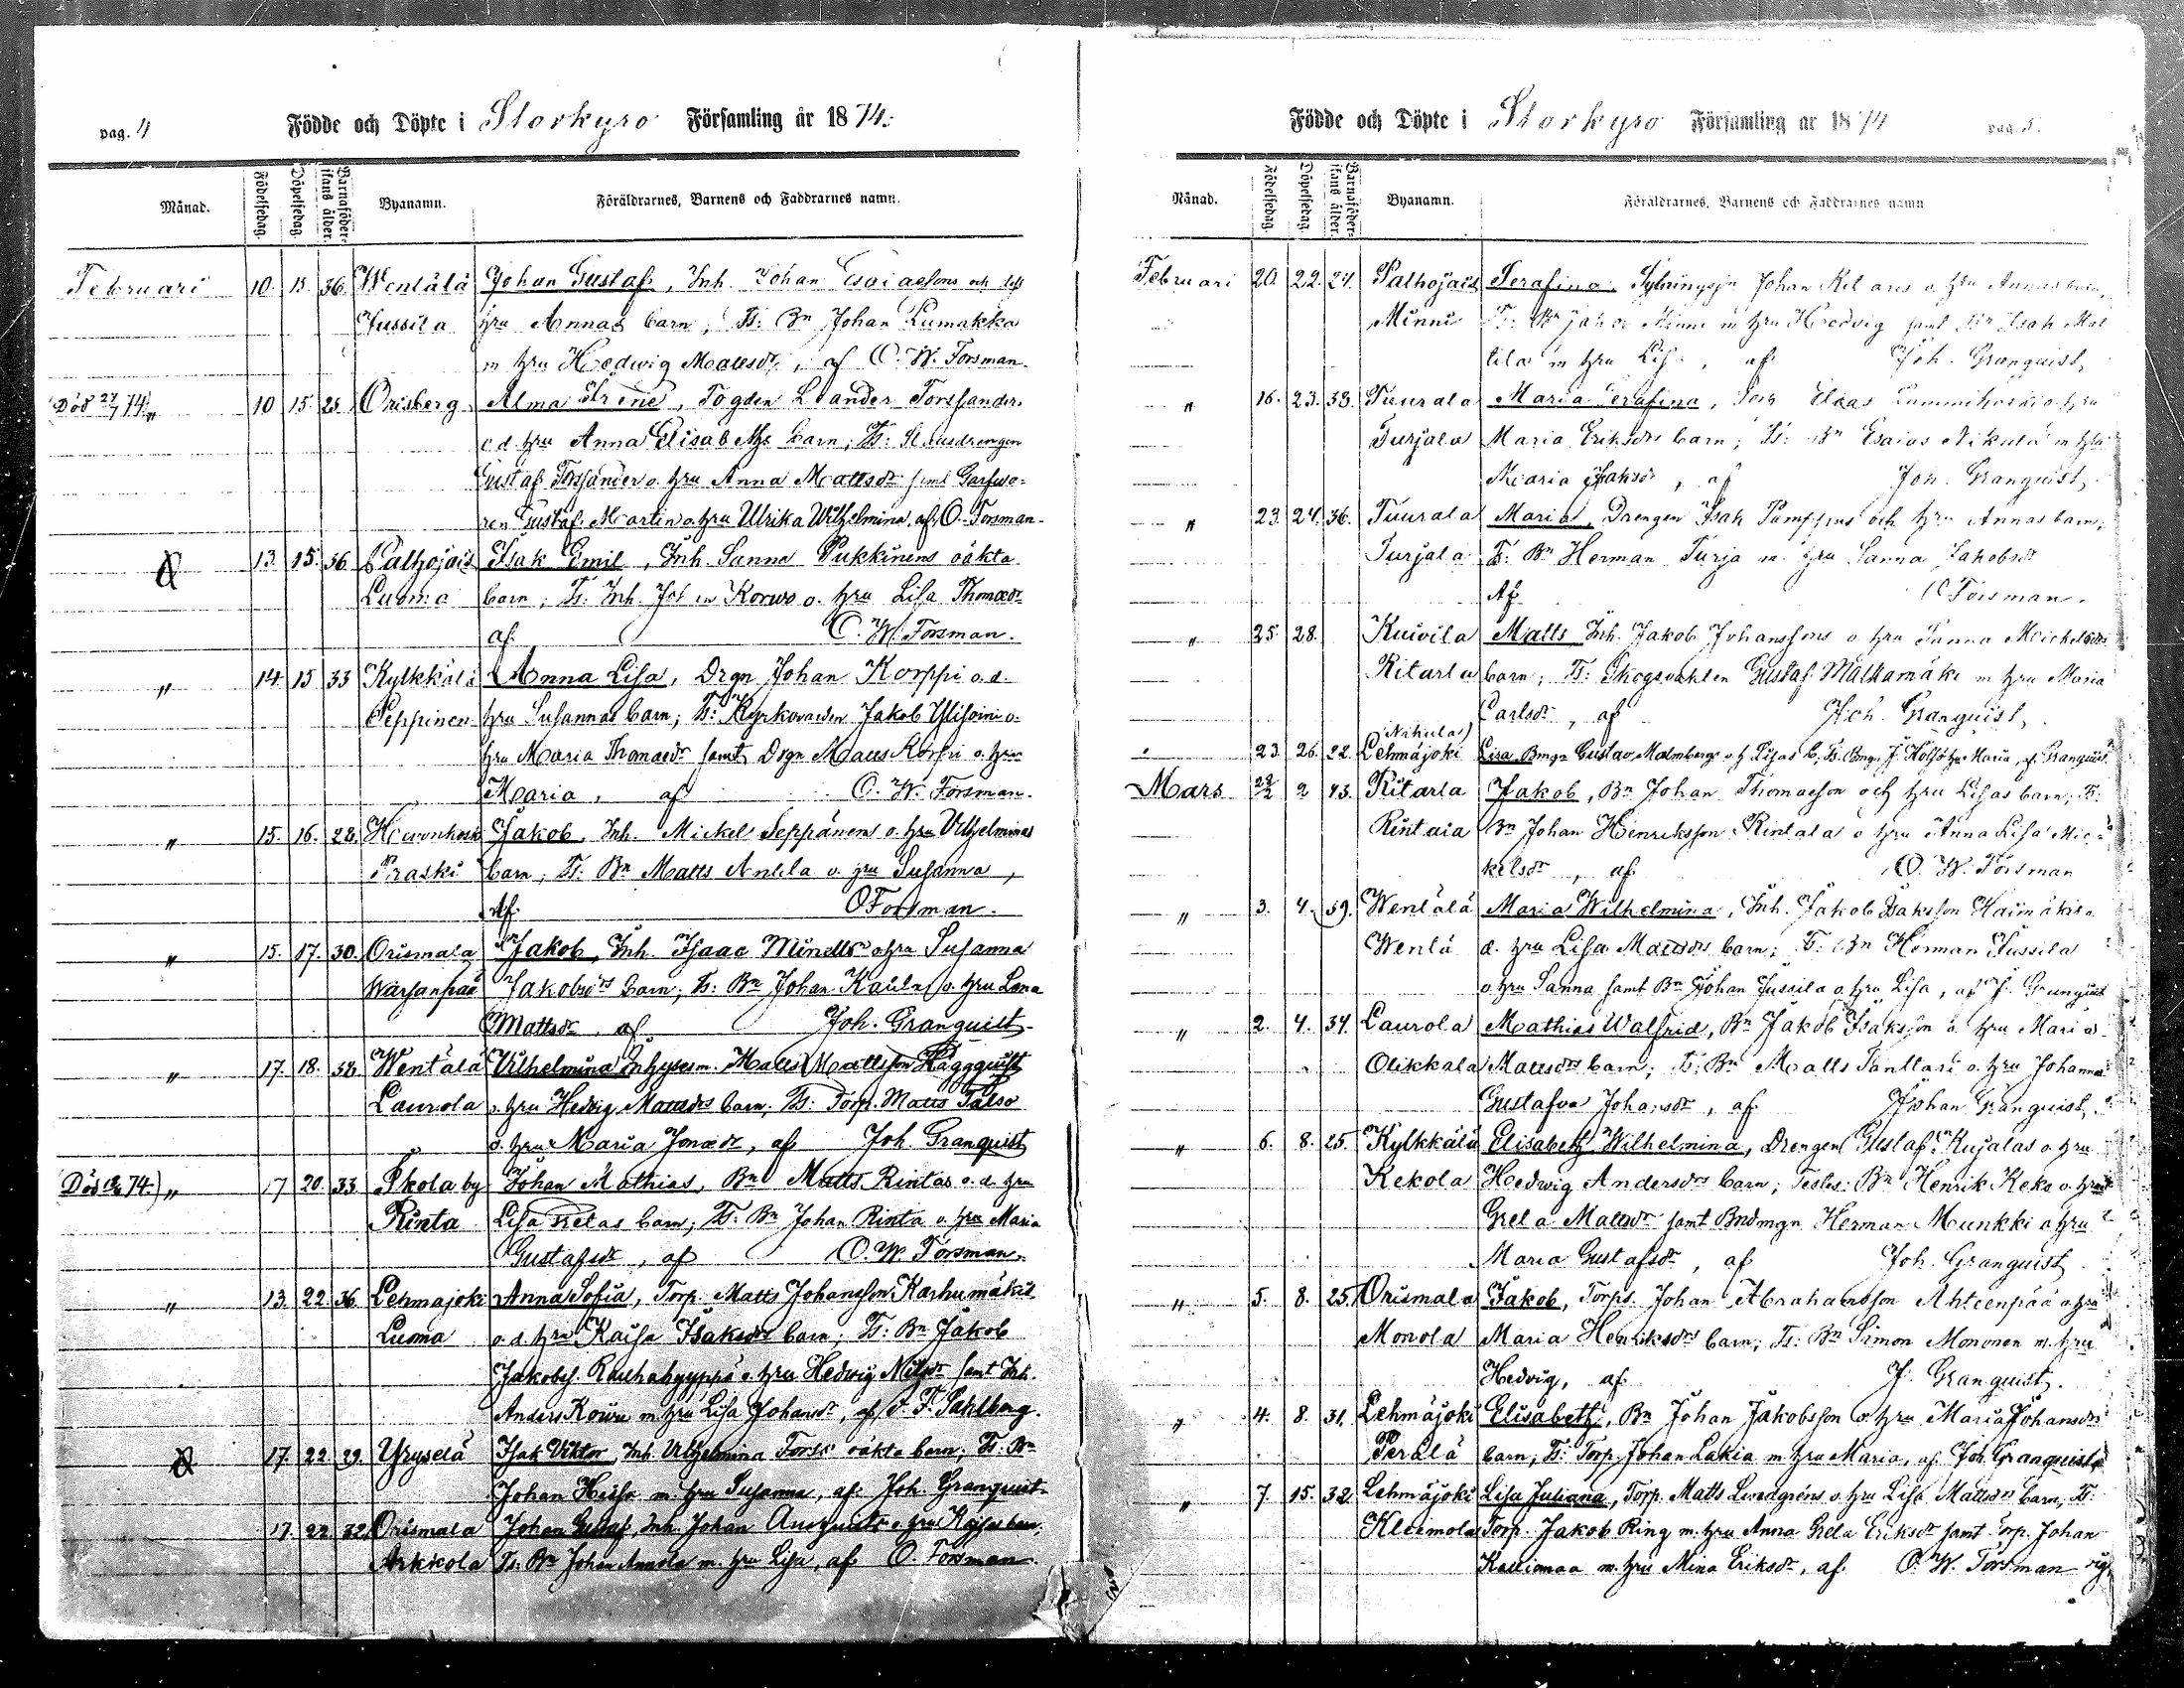 pag. 4
Födde och Döpte i Storkyro Församling år 1874.
Månad.
Födelsedag.
Döpelsedag.
Barnaföder-
skans ålder.
Byanamn.
Föräldrarnes, Barnens och Faddrarnes namn.
Februari 10. 15. 36. Wentälä Johan Gustaf, Inh. Johan Esaiaesons och
Jussila hru Annas barn; Ts: Bn Johan Lumakka
m hru Hedwig Mattsdr, af O. W. Forsman.
Död 27/7 74. " 10 15. 25 Orisberg Alma Irene, Fogden Leander Forssanders
o d. hru Anna Elisabeths barn; Ts: Husdrengen
Gustaf Forssander o. hru Anna Mattsdr samt Garfwa=
ren Gustaf Martin o. hru Ulrika Wilhelmina, af O. Forsman.
13. 15. 36 Palhojais Isak Emil, Inh. Sanna Pukkinens oäkta
Luoma barn; Ts: Inh. Johan Korwo o. hru Lisa Thomasdr
af O. W. Forsman.
" 14. 15 33 Kylkkälä Anna Lisa, Drgn Johan Korppi o. d.
Seppinen hru Susannas barn; Ts: Kyrkovärden Jakob Ylisoini o.
hru Maria Thomasdr samt Drgn Matts Korpi o. hru
Maria, af O. W. Forsman.
" 15. 16. 28. Jakob, Inh. Mickel Seppänens o. hru Vilhelminas
Praski barn; Ts: Bn Matts Anttla o. hru Susanna,
Af. O Forsman.
" 15. 17. 30. Orismala Jakob, Inh. Isaac Minells o hru Susanna
Warsanpää Jakobsdrs barn; Ts: Bn Johan Kaula o. hru Lena
Mattsdr. af Joh. Granquist.
" 17. 18. 32. Wentälä Vilhelmina Inhysesm. Matts Mattsson Häggquist
Laurola o. hru Hedvig Mattsdrs barn; Ts: Torp. Matts Talso
o. hru Maria Jonaedr, af Joh. Granquist
Död 74.) " 17 20. 33. Skolaby Johan Mathias, Bn Matts Rintas o. d. hru
Rinta Lisa Kretas barn; Ts: Bn Johan Rinta o. hru Maria
Gustafsdr, af O. W. Forsman.
" 13. 22. 36. Lehmajoki Anna Sofia, Torp. Matts Johansson Karhumäkis
Luoma o. d. hru Kaisa Isaksdrs barn; Ts: Bn Jakob
Jakobs. Rauhahyyppä o. hru Hedwig Nilsdr samt Inh.
Anders Kowu m. hru Lisa Johansdr, af F. F. Sahlberg.
17. 22. 29. Yryselä Isak Viktor, Inh. Vilhelmina Forss' oäkta barn; Ts: Bn
Johan Hissa m. hru Susanna, af Joh. Granquist.
17. 22. 32. Orismala Johan Gustaf, Inh. Johan o. hru Kajsas barn;
Arkkola Ts. Bn Johan Annola m. hru Lisa, af O. Forsman.
Födde och Döpte i Storkyro Församling år 1874
pag. 5.
Månad.
Födelsedag.
Döpelsedag.
Barnaföder-
skans ålder.
Byanamn.
Föräldrarnes, Barnens och Faddrarnes namn
Februari 20. 22. 24. Palhojais Serafina, Johan o hru Annas barn,
Minni Ts: Bn Johan Minni m hru Hedvig samt Bn Isak Mat
tila m hru Lisa, af Joh. Granquist,
" 16. 23. 33. Tuurala Maria Serafina, Elias o. hru
Turjala Maria Eriksdrs barn; Ts: Bn Esaias Nikula m hru
Maria Isaksdr, af Joh. Granquist,
" 23. 24. 36. Tuurala Maria, Drengen Isak Pamppus och hru Annas barn,
Turjala Ts: Bn Herman Turja m. hru Sanna Jakobsdr
Af O Forsman.
" 25. 28. Kuivila Matts Inh. Jakob Johanssons o hru Sanna Mickelsdrs
Ritarla barn; Ts: Skogsvakten Gustaf Mälkamäki m hru Maria
Carlsdr, af Joh. Granquist,
(Nikula)
23. 26. 22. Lehmäjoki Lisa Bmgn Gustav Malmbergs o h Lisas b; Ts. Bmgn J. Holfs hru Maria, af Granquist
Mars 28/2 2 43. Ritarla Jakob, Bn Johan Thomasson och hru Lisas barn; Ts:
Rintaia Bn Johan Henriksson Rintala o hru Anna Lisa Mic=
kelsdr, af O. W. Forsman
" 3. 4. 39. Wentälä Maria Wilhelmina, Inh. Jakob Isaksson Haimäkis o.
Wentä d. hru Lisa Mattsdrs barn; Ts: Bn Herman Jussila
o. hru Sanna samt Bn Johan Jussila o. hru Lisa, af J. Granquist
" 2. 4. 34. Laurola Mathias Walfrid, Bn Jakob Isaksson o. hru Marias
Olikkala Mattsdrs barn; Ts: Bn Matts Tanttari o. hru Johanna
Gustafva Johansdr, af Johan Granquist,
" 6. 8. 25. Kylkkälä Elisabeth Wilhelmina, Drengen Gustaf Kujalas o. hru
Kekola Hedwig Andersdrs barn; Testes: Bn Henrik Keko o. hru
Greta Mattsdr samt Bndmgn Herman Munkki o hru
Maria Gustafsdr, af Joh. Granquist.
" 5. 8. 25. Orismala Jakob, Torps. Johan Abrahamsson Ahteenpää o. hru
Monola Maria Henriksdrs barn; Ts: Bn Simon Mononen m. hru
Hedvig, af J. Granquist.
" 4. 8. 31. Lehmäjoki Elisabeth, Bn Johan Jakobsson o. hru Maria Johansdrs
Perälä barn; Ts: Torp. Johan Lakia m. hru Maria, af Joh. Granquist,
" 7. 15. 32 Lehmäjoki Lisa Juliana, Torp. Matts Lundgréns o. hru Lisa Mattsdrs barn, Ts:
Kleimola Torp. Jakob Ring m. hru Anna Greta Eriksdr samt Torp. Johan
Kalliomaa m. hru Mina Eriksdr, af. O. W. Forsman